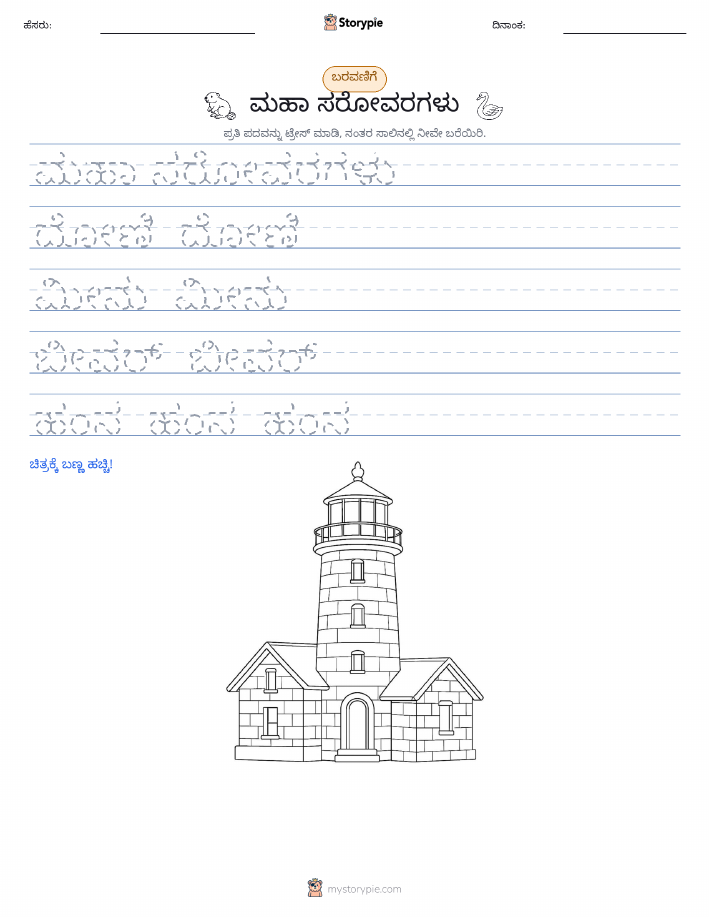 ಹೆಸರು:
Storypie
ದಿನಾಂಕ:
ಬರವಣಿಗೆ
ಮಹಾ ಸರೋವರಗಳು
ಪ್ರತಿ ಪದವನ್ನು ಟ್ರೇಸ್ ಮಾಡಿ, ನಂತರ ಸಾಲಿನಲ್ಲಿ ನೀವೇ ಬರೆಯಿರಿ.
ಮಹಾ ಸರೋವರಗಳು
ದೋಣಿ ದೋಣಿ
ಮೀನು ಮೀನು
ಬೀವರ್ ಬೀವರ್
ಹಂಸ ಹಂಸ ಹಂಸ
ಚಿತ್ರಕ್ಕೆ ಬಣ್ಣ ಹಚ್ಚಿ!
mystorypie.com